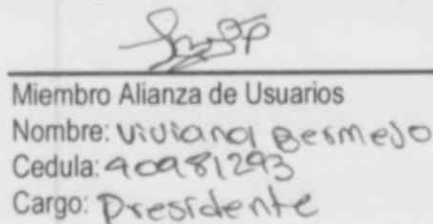 Miembro Alianza de Usuarios
Nombre: Viviana Bermejo
Cedula: 40981293
Cargo: Presidente